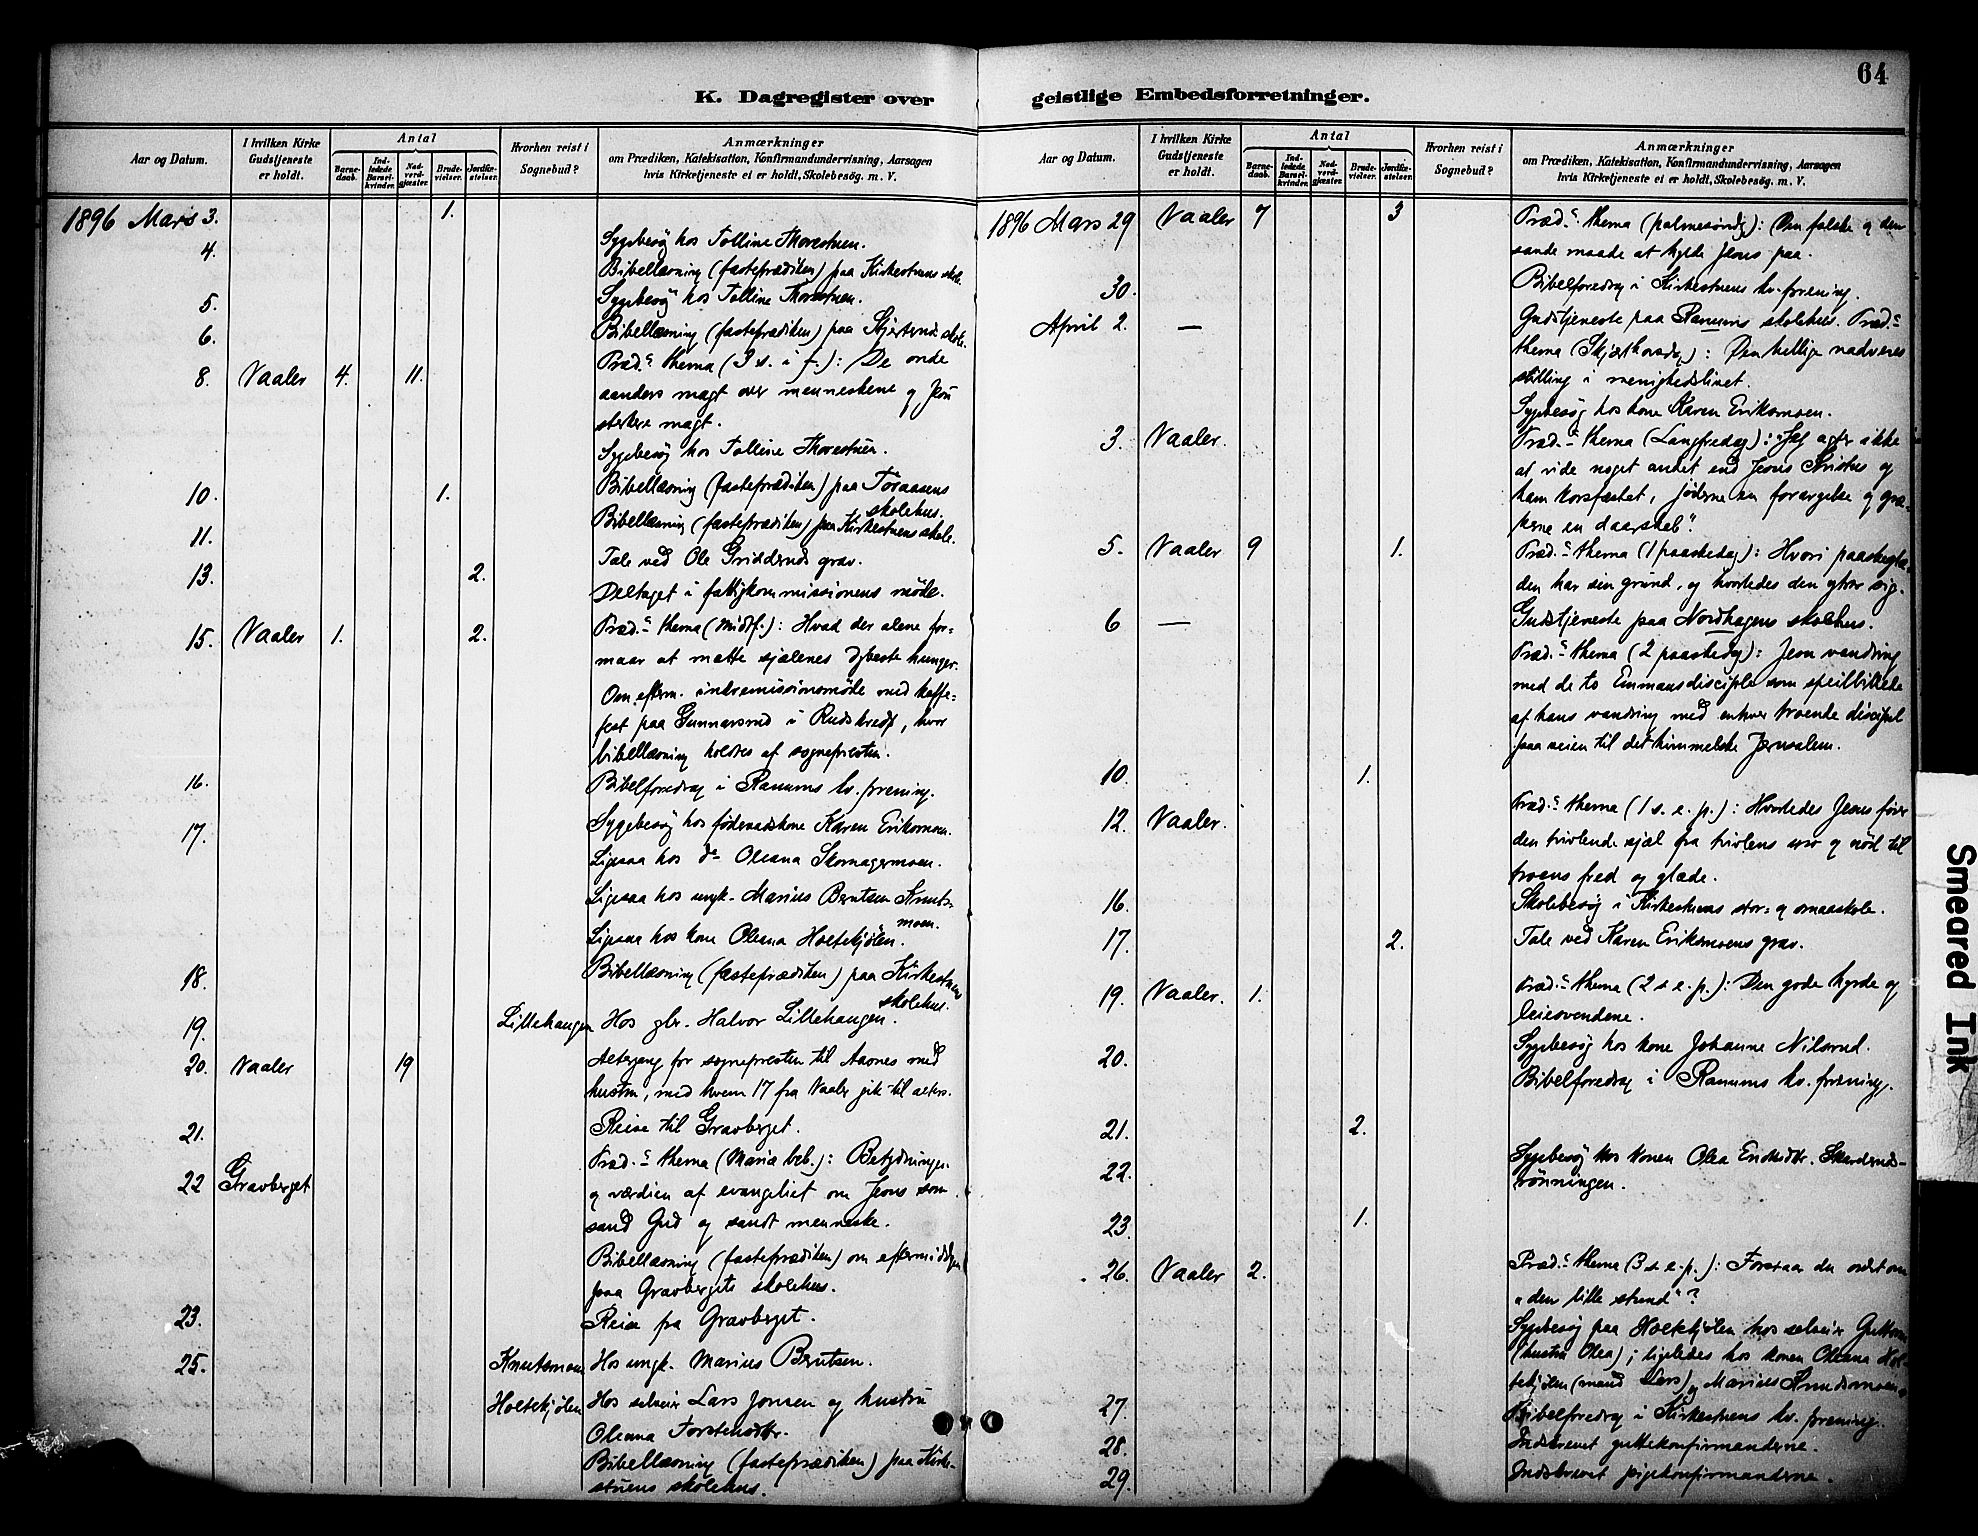 64
K. Dagregister over geistlige Embedsforretninger.
Aar og Datum.
I hvilken Kirke Gudstjeneste er holdt.
Antal
Barnedaab.
Indledede Barselkvinder.
Nadverdgjester.
Brudevielser.
Jordfæstelser.
Hvorhen reist i Sognebud?
Anmærkninger
om Prædiken, Katekisation, Konfirmandundervisning, Aarsagen
hvis Kirketjeneste ei er holdt, Skolebesøg. m. V.
1896 Mars 3. 1.
Sygebesøg hos Tolline Thorestuen.
4.
Bibellæsning (fasteprædiken) paa Kirkestuens skole.
5. Sygebesøg hos Tolline Thorestuen.
6. Bibellæsning (fasteprædiken) paa skole.
8. Vaaler 4. 11. Præd.s thema (3 s. i f.): De onde
aanders magt over menneskene og Jesu
sterkere magt.
Sygebesøg hos Tolline Thorestuen.
10. 1. Bibellæsning (fasteprædiken) paa Toraasens
skolehus.
11. Bibellæsning (fasteprædiken) paa Kirkestuens skole.
13. 2. Tale ved Ole Gridderuds grav.
Deltaget i fattigkommissionens møde.
15. Vaaler 1. 2. Præd.s thema (Midf.): Hvad der alene for=
maar at mætte sjælenes dybeste hunger.
Om efterm. indremissionsmøde med kaffe=
fest paa Gunnarsrud i Rudskredt, hvor
bibellæsning holdtes af sognepresten.
16. Bibelforedrag i Ranums kv. forening.
17. Sygebesøg hos føderaadskone Karen Eriksmoen.
Ligesaa hos do Oleana Skomagermoen.
Ligesaa hos ungk. Marius Berntsen Knuts=
moen.
Ligesaa hos kone Oleana Holtekjølen.
18. Bibellæsning (fasteprædiken) paa Kirkestuens
skolehus.
19. Lillehaugen Hos gbr. Halvor Lillehaugen.
20. Vaaler 19 Altergang for sognepresten til Aasnes med
hustru, med hvem 17 fra Vaaler gik til alters.
21. Reise til Gravberget.
22 Gravberget Præd.s thema (Maria beb.): Betydningen
og værdien af evangeliet om Jesus som
sand Gud og sandt menneske.
Bibellæsning (fasteprædiken) om eftermiddagen
paa Gravbergets skolehus.
23. Reise fra Gravberget.
25. Knutsmoen Hos ungk. Marius Berntsen.
Holtekjølen Hos selveier Lars Jonsen og hustru
Oleana Torstensdtr.
Bibellæsning (fasteprædiken) paa Kirke=
stuens skolehus.
Aar og Datum.
I hvilken Kirke Gudstjeneste er holdt.
Antal
Barnedaab.
Indledede Barselkvinder.
Nadverdgjester.
Brudevielser.
Jordfæstelser.
Hvorhen reist i Sognebud?
Anmærkninger
om Prædiken, Katekisation, Konfirmandundervisning, Aarsagen
hvis Kirketjeneste ei er holdt, Skolebesøg. m. V.
1896 Mars 29 Vaaler 7 3 Præd.s thema (palmesøndg): Den falske og den
sande maade at hylde Jesus paa.
30. Bibelforedrag i Kirkestuens kv. forening.
April 2. — Gudstjeneste paa Ranums skolehus. Præd.s
thema (Skjærthorsdg): Den hellige nadveres
stilling i menighedslivet.
Sygebesøg hos kone Karen Eriksmoen.
3. Vaaler. Præd.s thema (Langfredag): "Jeg agter ikke
at vide noget andet end Jesus Kristus og
ham korsfæstet, jøderne en forargelse og græ=
kerne en daarskab".
5. Vaaler 9 1. Præd.s thema (1 paaskedag): Hvori paaskeglæ=
den har sin grund, og hvorledes den ytrer sig.
6 — Gudstjeneste paa Nordhagens skolehus.
Præd.s thema (2 paaskedg): Jesu vandring
med de to Emmausdisciple som speilbillede
af hans vandring med enhver troende discipel
paa veien til det himmelske Jerusalem.
10. 1.
12. Vaaler. Præd.s thema (1 s. e. p.): Hvorledes Jesus fører
den tvivlende sjæl fra tvivlens uro og nød til
troens fred og glæde.
16. Skolebesøg i Kirkestuens stor= og smaaskole.
17. 2. Tale ved Karen Eriksmoens grav.
19. Vaaler. 1. Præd.s thema (2 s. e. p.): Den gode hyrde og
leiesvendene.
20. Sygebesøg hos kone Johanne Nilsrud.
Bibelforedrag i Ranums kv. forening.
21. 2.
22. Sygebesøg hos konen Olea Endresdtr. Skarderuds=
rønningen.
23. 1.
26. Vaaler 2. Præd.s thema (3 s. e. p.): Forstaar du ordet om
"den lille stund"?
Sygebesøg paa Holtekjølen hos selveier Guttorm
(hustru Olea); ligeledes hos konen Oleana Hol=
tekjølen (mand Lars) og Marius Knudsmoen.
27. Bibelforedrag i Kirkestuens kv. forening.
28. Indskrevet guttekonfirmanderne.
29. Indskrevet pigekonfirmanderne.
Smeared Ink